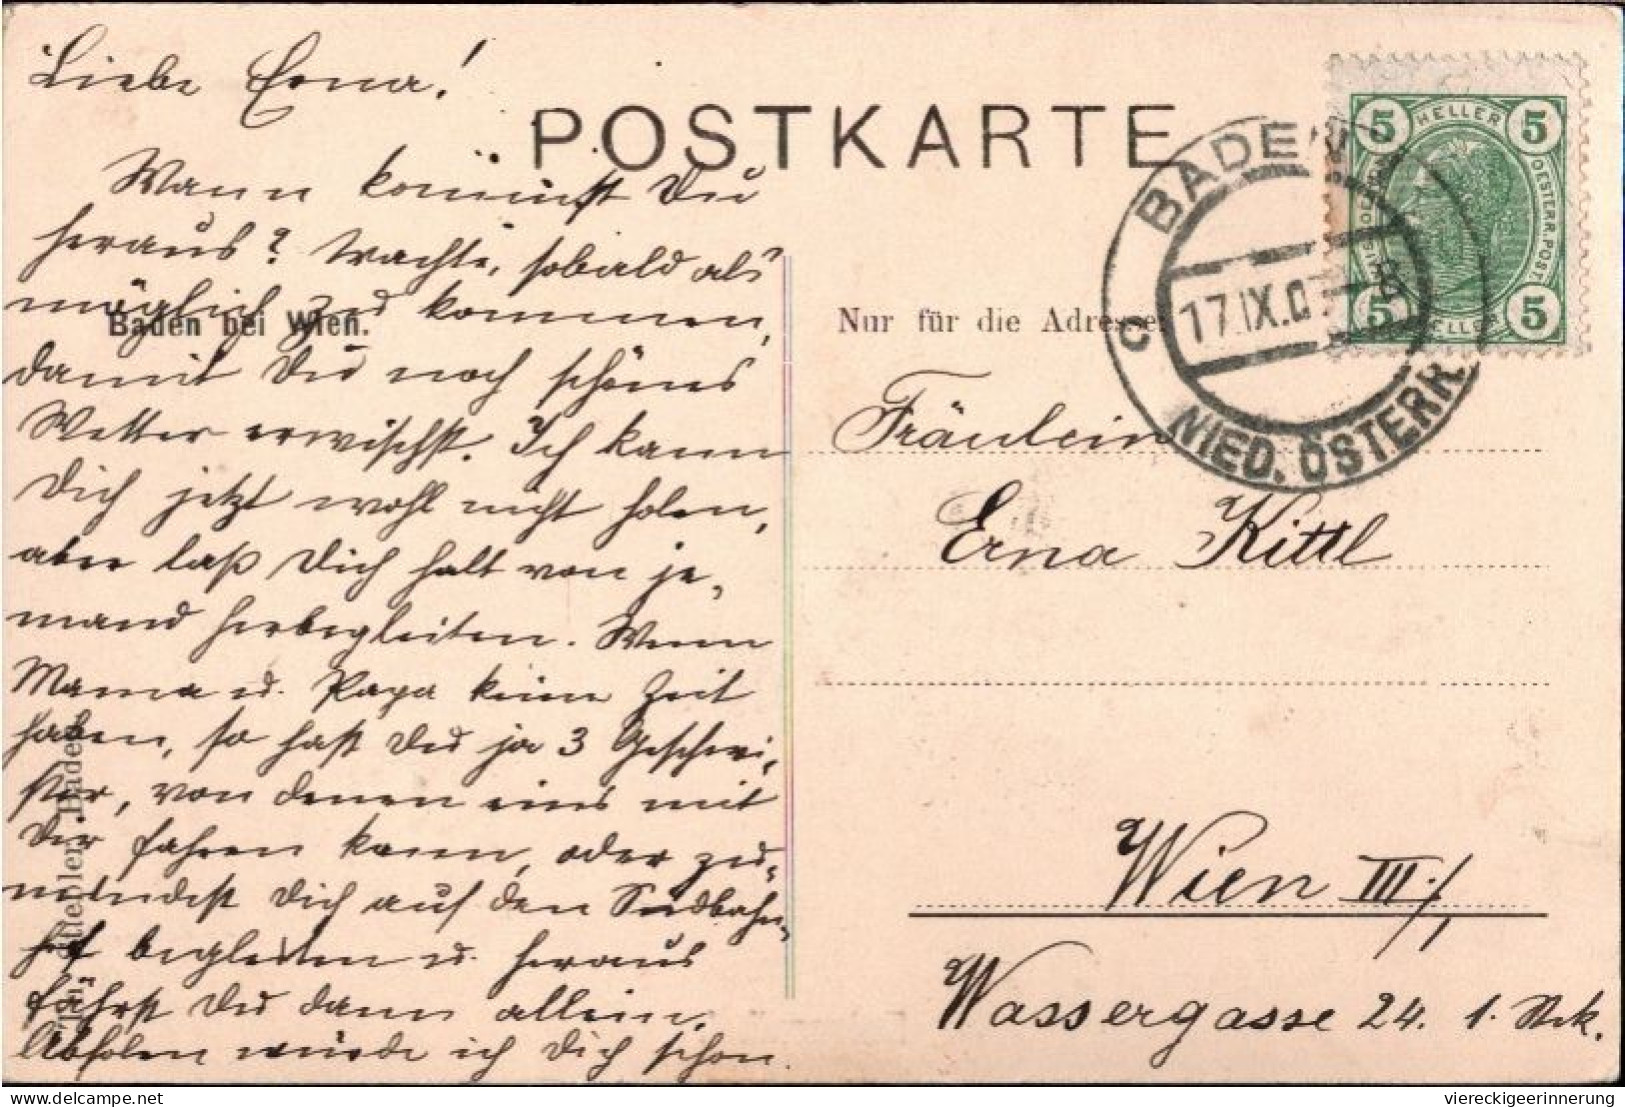 Liebe Erna!
POSTKARTE
Wann kommst Du
heraus? Trachte, sobald als
möglich zu kommen,
damit Du noch schönes
Wetter erwischst. Ich kann
Dich jetzt wohl nicht holen,
aber laß Dich halt von je-
mand herbegleiten. Wenn
Mama u. Papa keine Zeit
haben, so hast Du ja 3 Geschwi-
ster, von denen eins mit
Dir fahren kann, oder zu-
mindest Dich auf den Südbahn-
hof begleiten u. heraus
fährst Du dann allein.
Abholen würde ich Dich schon.
Baden bei Wien.
Baden
Nur für die Adresse.
BADEN
17.IX.07
C
NIED. ÖSTERR.
5 HELLER 5
OESTERR. POST
5 HELLER 5
Fräulein
Erna Kittl
Wien III./1
Wassergasse 24. 1. Stck.
viereckigeerinnerung